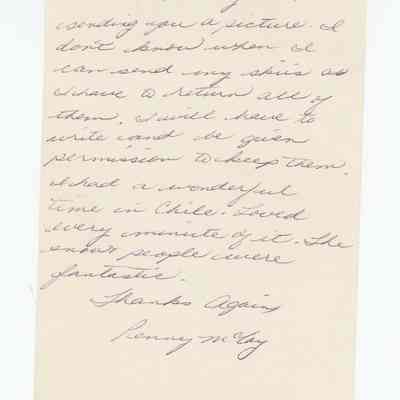 sending you a picture. I
don't know when I
can send my skiis as
I have to return all of
them. I will have to
write and be given
permission to keep them.
I had a wonderful
time in Chile. Loved
every minute of it. The
snow & people were
fantastic.
Thanks Again,
Penny McCoy